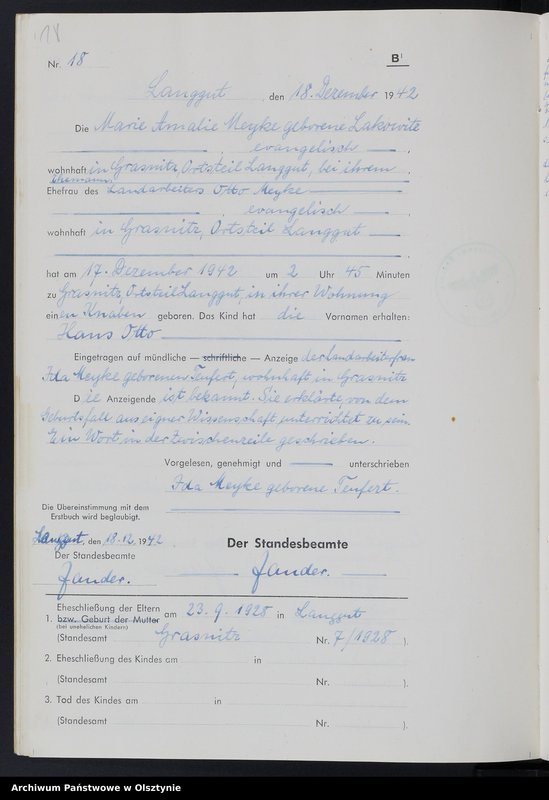 18
Nr. 18
B1
Langgut, den 18. Dezember 1942
Die Marie Amalie Meyke geborene Lakowitz
, evangelisch ,
wohnhaft in Grasnitz, Ortsteil Langgut, bei ihrem
Ehemann,
Ehefrau des Landarbeiters Otto Meyke
, evangelisch ,
wohnhaft in Grasnitz, Ortsteil Langgut
hat am 17. Dezember 1942 um 2 Uhr 45 Minuten
zu Grasnitz, Ortsteil Langgut, in ihrer Wohnung
einen Knaben geboren. Das Kind hat die Vornamen erhalten:
Hans Otto
Eingetragen auf mündliche — schriftliche — Anzeige der Landarbeiterfrau
Ida Meyke geborenen Teufert, wohnhaft in Grasnitz
Die Anzeigende ist bekannt. Sie erklärte von dem
Geburtsfall aus eigner Wissenschaft unterrichtet zu sein.
Ein Wort in der Zwischenzeile geschrieben.
Vorgelesen, genehmigt und unterschrieben
Ida Meyke geborene Teufert.
Die Übereinstimmung mit dem
Erstbuch wird beglaubigt.
Langgut, den 18.12.1942
Der Standesbeamte
Jander.
Der Standesbeamte
Jander.
1. Eheschließung der Eltern
bzw. Geburt der Mutter am 23. 9. 1928 in Langgut
(bei unehelichen Kindern)
(Standesamt Grasnitz Nr. 7/1928 ).
2. Eheschließung des Kindes am in
(Standesamt Nr. ).
3. Tod des Kindes am in
(Standesamt Nr. ).
Archiwum Państwowe w Olsztynie